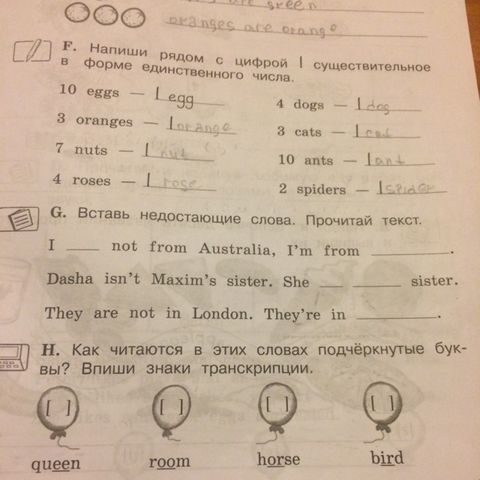 are green
oranges are orange
F. Напиши рядом с цифрой 1 существительное
в форме единственного числа.
10 eggs — 1 egg
4 dogs — 1 dog
3 oranges — 1 orange
3 cats — 1 cat
7 nuts — 1 nut
10 ants — 1 ant
4 roses — 1 rose
2 spiders — 1 spider
G. Вставь недостающие слова. Прочитай текст.
I ____ not from Australia, I'm from ________.
Dasha isn't Maxim's sister. She ____ ______ sister.
They are not in London. They're in ________.
H. Как читаются в этих словах подчёркнутые бук-
вы? Впиши знаки транскрипции.
[ ] [ ] [ ] [ ]
queen room horse bird